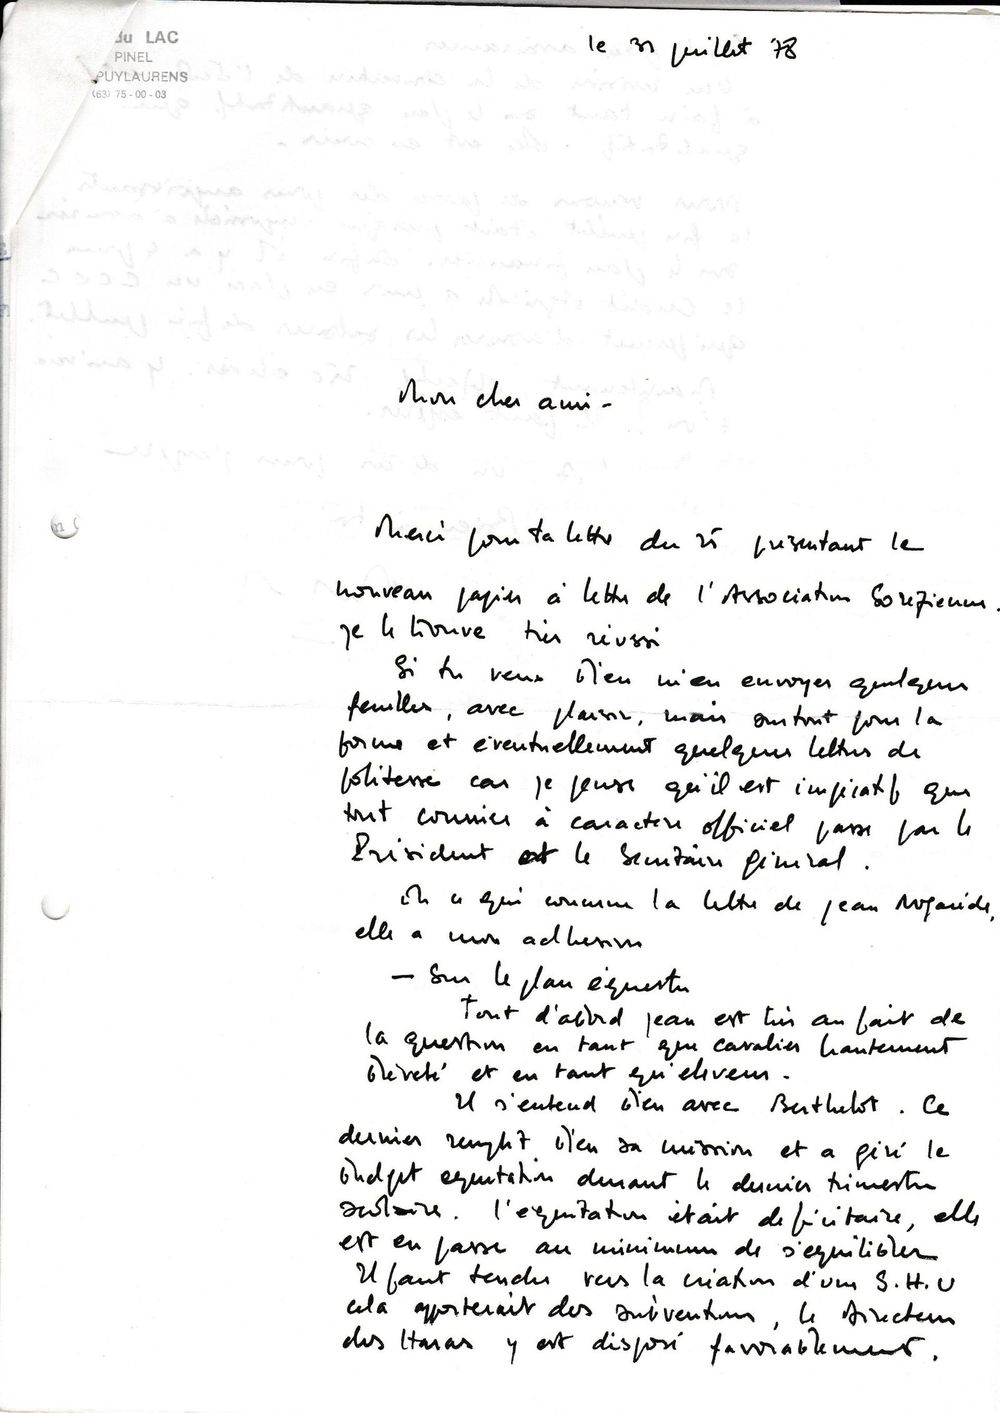 du LAC
PINEL
PUYLAURENS
(63) 75-00-03
le 31 juillet 78
Mon cher ami -
Merci pour ta lettre du 25 présentant le
nouveau papier à lettre de l'Association Sorézienne.
je le trouve très réussi
Si tu veux bien m'en envoyer quelques
feuilles, avec plaisir, mais surtout pour la
forme et éventuellement quelques lettres de
politesse car je pense qu'il est impératif que
tout courrier à caractère officiel passe par le
Président et le Secrétaire général.
En ce qui concerne la lettre de jean
elle a mon adhésion
— Sur le plan équestre
Tout d'abord jean est très au fait de
la question en tant que cavalier hautement
breveté et en tant qu'éleveur.
Il s'entend bien avec Berthelot. Ce
dernier remplit bien sa mission et a géré le
budget equitation durant le dernier trimestre
scolaire. l'equitation était déficitaire, elle
est en passe au minimum de s'équilibrer
Il faut tendre vers la création d'une S.H.U
cela apporterait des subventions, le Directeur
des Haras y est disposé favorablement.